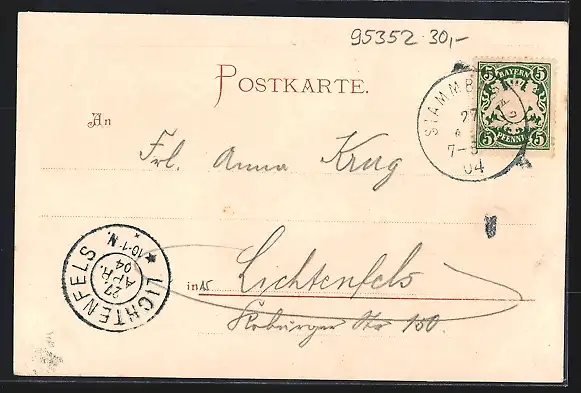 95352 30,-
POSTKARTE.
BAYERN
5 5
PFENNIG
5 5
STAMMB
27
A
7-8
04
An
Frl. Anna Krug
in
Lichtenfels
Koburger Str 150.
LICHTENFELS
27.
APR.
04
10-1 N.